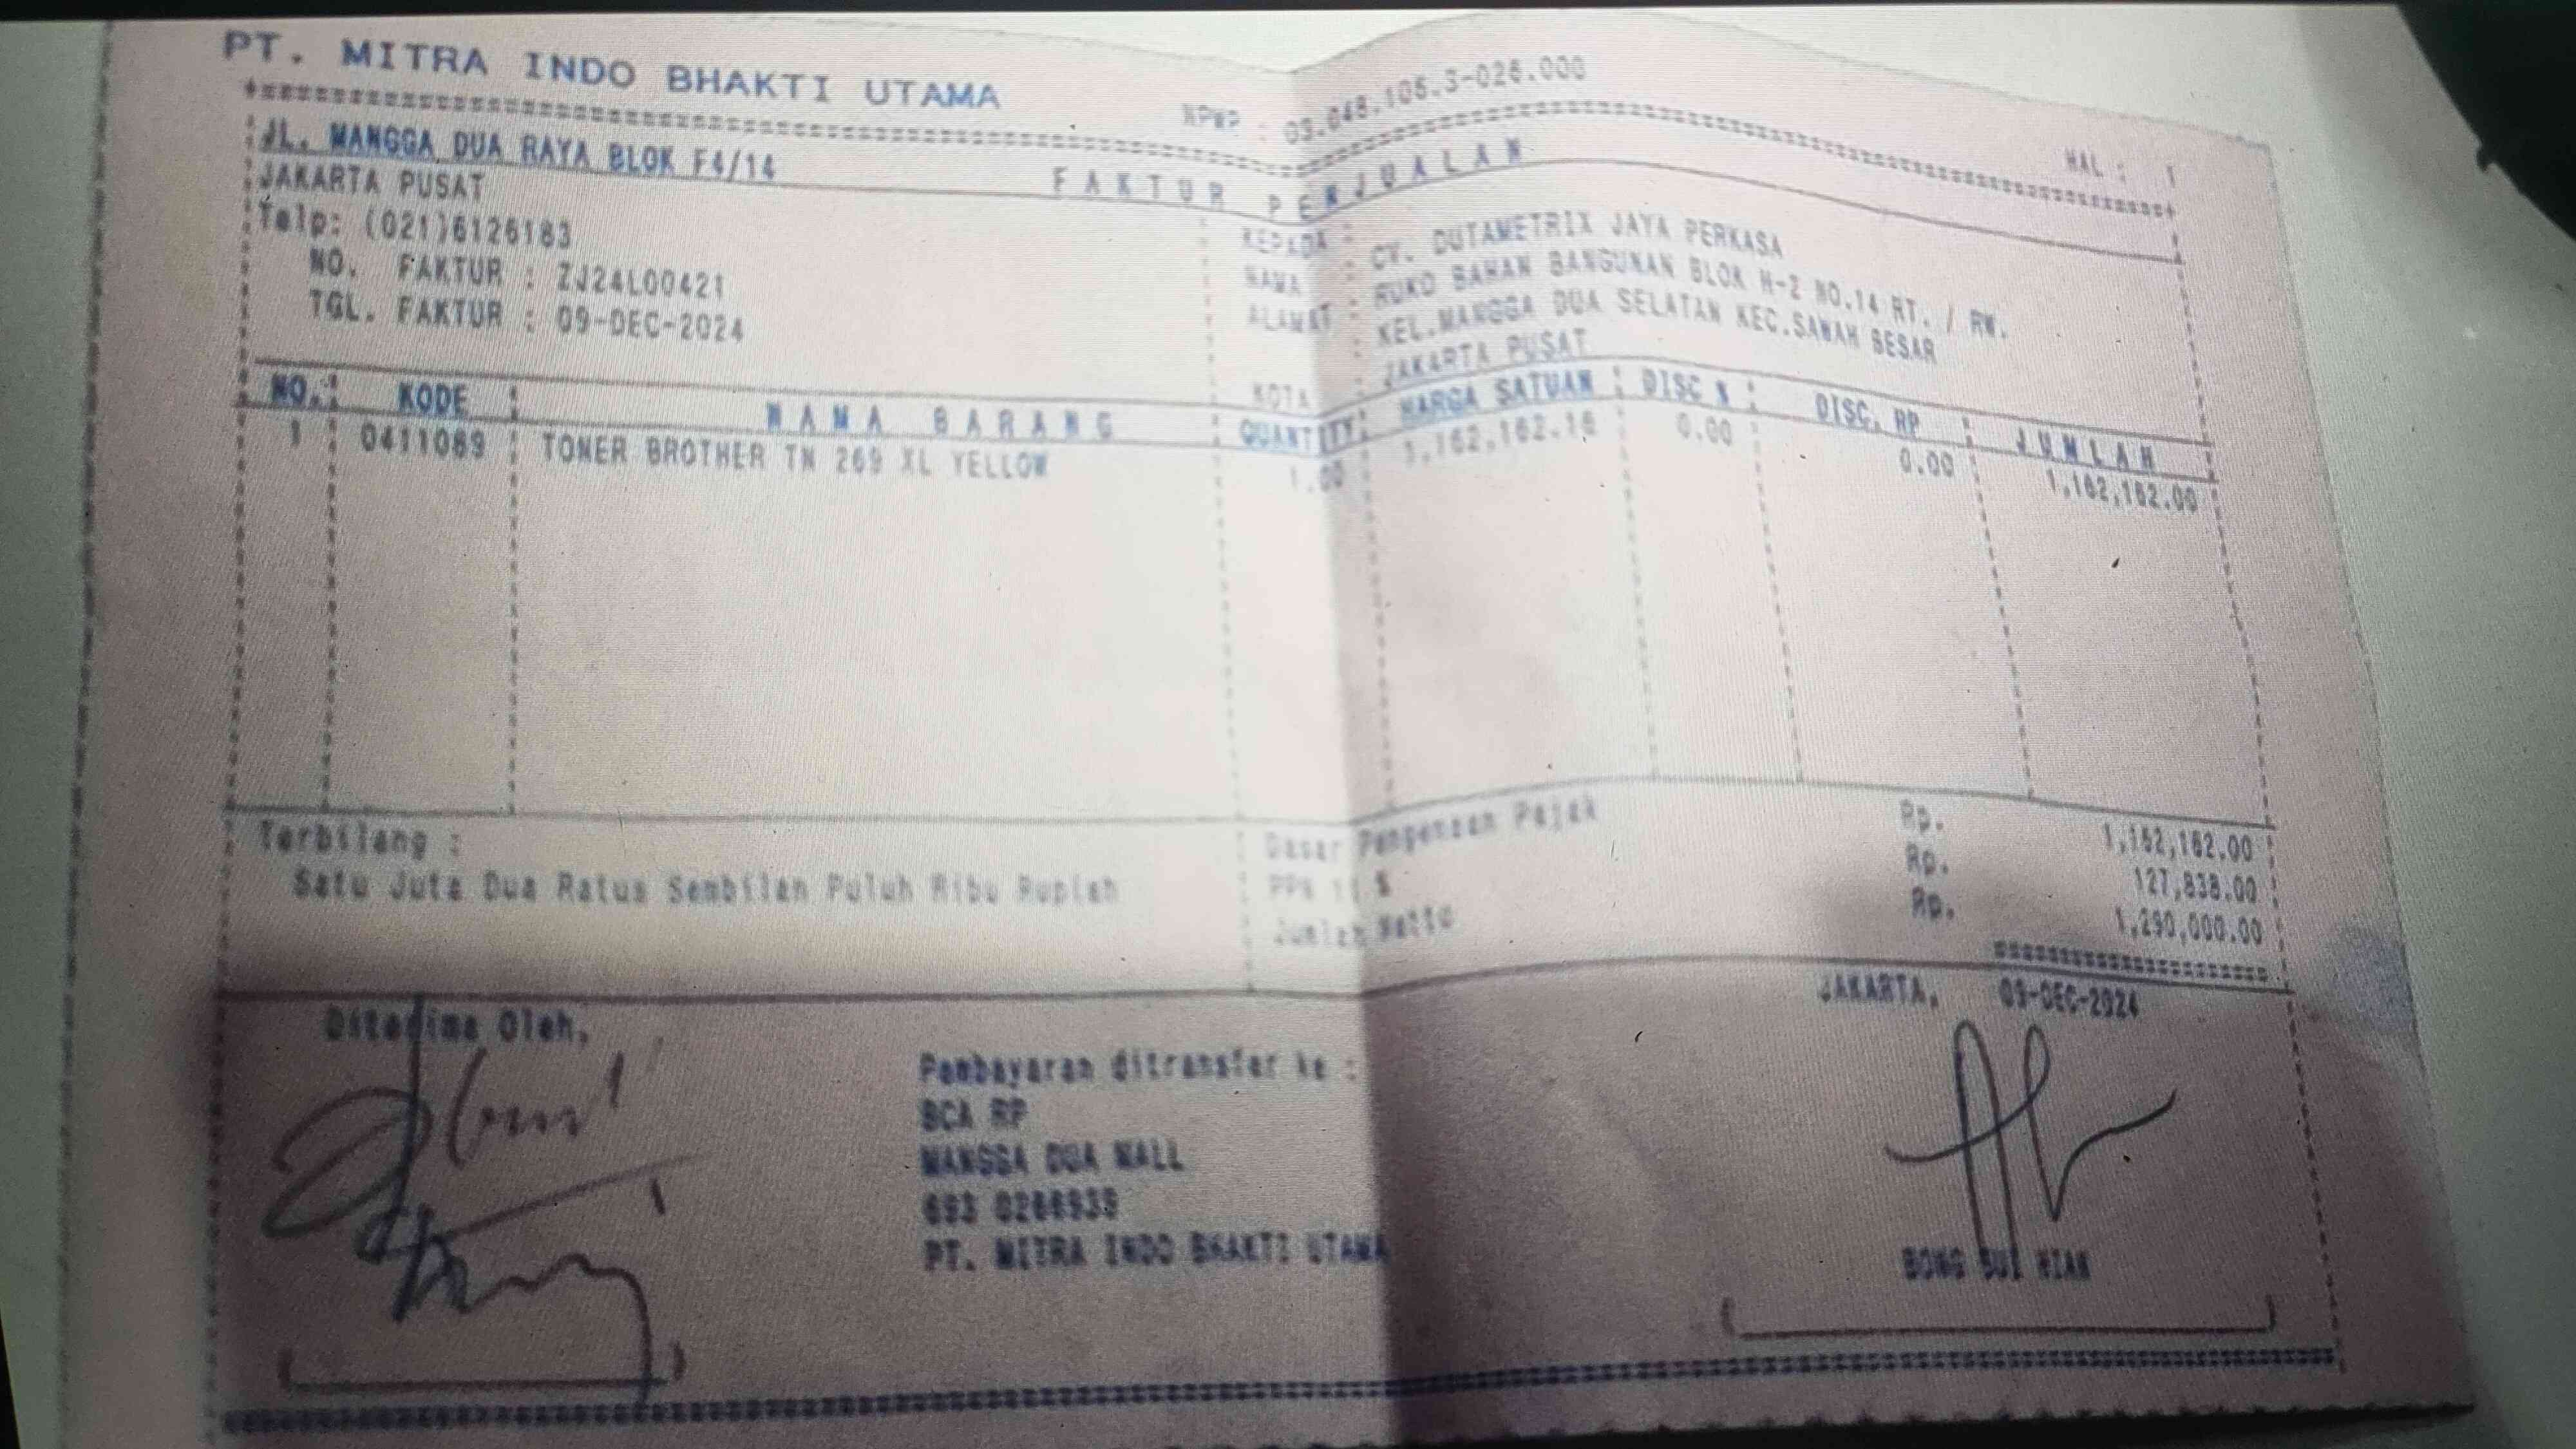 PT. MITRA INDO BHAKTI UTAMA
NPWP : 03.048.105.3-026.000
HAL : 1
JL. MANGGA DUA RAYA BLOK F4/14
JAKARTA PUSAT
Telp: (021)6126183
FAKTUR PENJUALAN
NO. FAKTUR : ZJ24L00421
TGL. FAKTUR : 09-DEC-2024
KEPADA :
NAMA : CV. DUTAMETRIX JAYA PERKASA
ALAMAT : RUKO BAHAN BANGUNAN BLOK H-2 NO.14 RT. / RW.
: KEL.MANGGA DUA SELATAN KEC.SAWAH BESAR
KOTA : JAKARTA PUSAT
NO. KODE NAMA BARANG QUANTITY HARGA SATUAN DISC % DISC. RP JUMLAH
1 0411089 TONER BROTHER TN 269 XL YELLOW 1.00 1,162,162.16 0.00 0.00 1,162,162.00
Terbilang :
Satu Juta Dua Ratus Sembilan Puluh Ribu Rupiah
Dasar Pengenaan Pajak Rp. 1,162,162.00
PPN 11 % Rp. 127,838.00
Jumlah Netto Rp. 1,290,000.00
JAKARTA, 09-DEC-2024
Diterima Oleh,
Pembayaran ditransfer ke :
BCA RP
MANGGA DUA MALL
PT. MITRA INDO BHAKTI UTAMA
BONG SUI